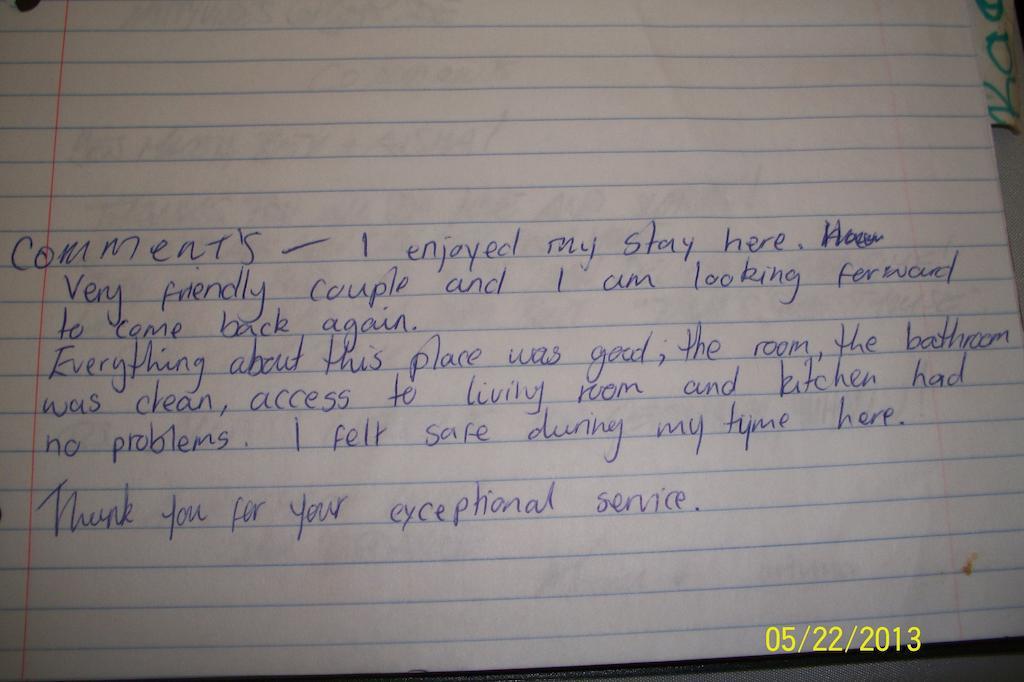 Comment's – I enjoyed my stay here.
Very friendly couple and I am looking forward
to come back again.
Everything about this place was good; the room, the bathroom
was clean, access to living room and kitchen had
no problems. I felt safe during my tyme here.
Thank you for your exceptional service.
05/22/2013